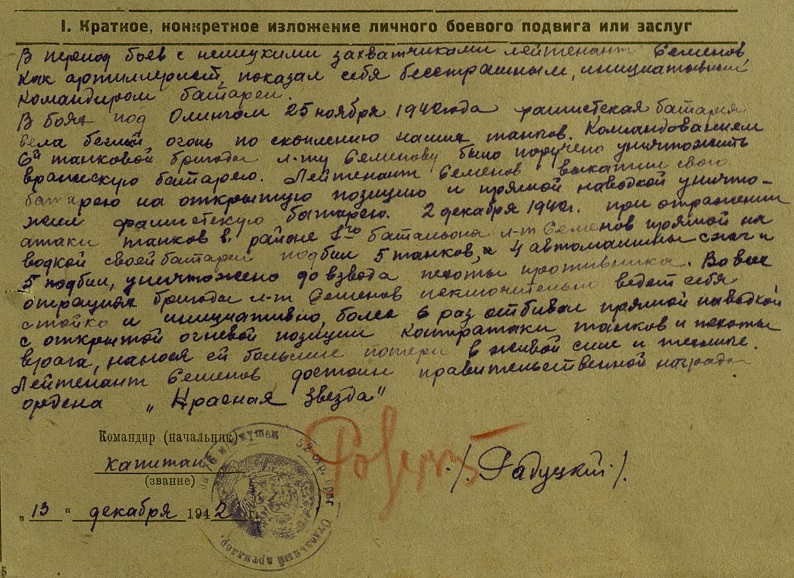 I. Краткое, конкретное изложение личного боевого подвига или заслуг
В период боев с немецкими захватчиками лейтенант Семенов
как артиллерист, показал себя бесстрашным, инициативным
командиром батареи.
В боях под 25 ноября 1942 года фашистская батарея
вела беглый огонь по скоплению наших танков. Командованием
6й танковой бригады л-ту Семенову было поручено уничтожить
вражескую батарею. Лейтенант Семенов выкатил свою
батарею на открытую позицию и прямой наводкой уничто-
жил фашистскую батарею. 2 декабря 1942г. при отражении
атаки танков в районе 1го батальона л-т Семенов прямой на
водкой своей батареи подбил 5 танков, 4 автомашины сжег и
5 подбил, уничтожено до взвода пехоты противника. Во всех
операциях бригады л-т Семенов исключительно ведет себя
стойко и инициативно, более 6 раз отбивал прямой наводкой
с открытой огневой позиции контратаки танков и пехоты
врага, нанося ей большие потери в живой силе и технике.
Лейтенант Семенов достоин правительственной награды
ордена „Красная Звезда"
Командир (начальник)
капитан
(звание)
./Рабуцкий/.
„13" декабря 1942 г.
52 Отдельный